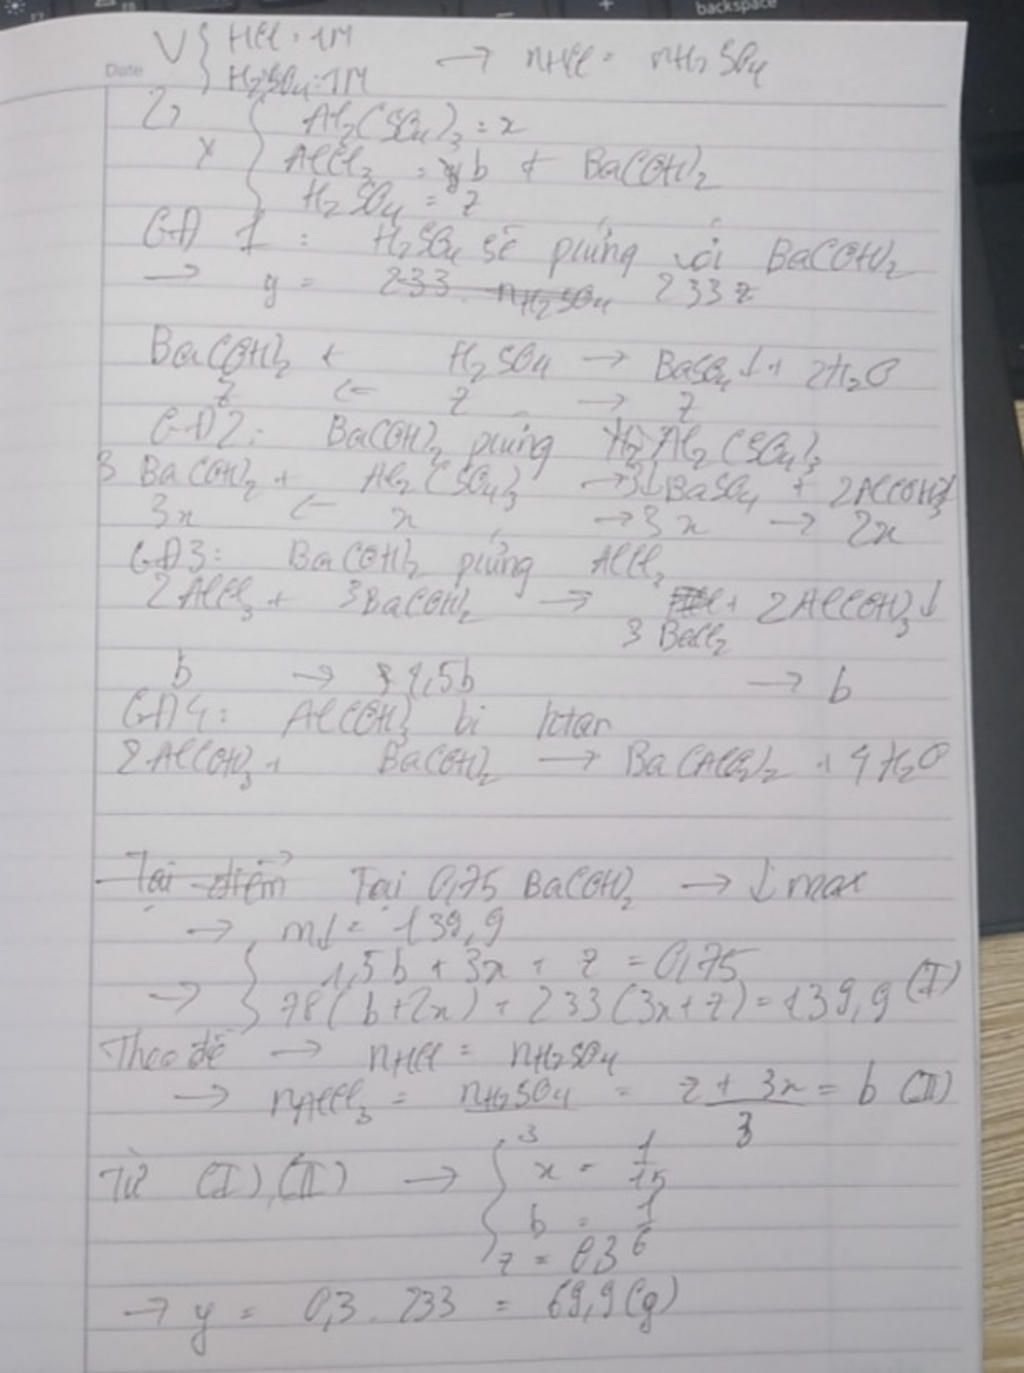 backspace
Date
V { HCl : 1M
H2SO4 : 1M → nHCl = nH2SO4
2)
X { Al2(SO4)3 = x
AlCl3 = b + Ba(OH)2
H2SO4 = z
GĐ 1 : H2SO4 sẽ pứng với Ba(OH)2
→ y = 233 . nH2SO4 233 z
Ba(OH)2 + H2SO4 → BaSO4↓ + 2H2O
z ← z → z
GĐ2: Ba(OH)2 pứng Al2(SO4)3
3 Ba(OH)2 + Al2(SO4)3 → 3↓BaSO4 + 2Al(OH)3↓
3x ← x → 3x → 2x
GĐ3: Ba(OH)2 pứng AlCl3
2AlCl3 + 3Ba(OH)2 → 3 BaCl2 + 2Al(OH)3↓
b → 1,5b → b
GĐ4: Al(OH)3 bị htan
2Al(OH)3 + Ba(OH)2 → Ba(AlO2)2 + 4H2O
Tại điểm Tại 0,75 Ba(OH)2 → ↓max
→ m↓ = 139,9
→ { 1,5b + 3x + z = 0,75
78(b+2x) + 233(3x+z) = 139,9 (I)
Theo đề → nHCl = nH2SO4
→ nAlCl3 = nH2SO4/3 = (z + 3x)/3 = b (II)
Từ (I), (II) → { x = 1/15
b = 1/6
z = 0,3
→ y = 0,3 . 233 = 69,9(g)